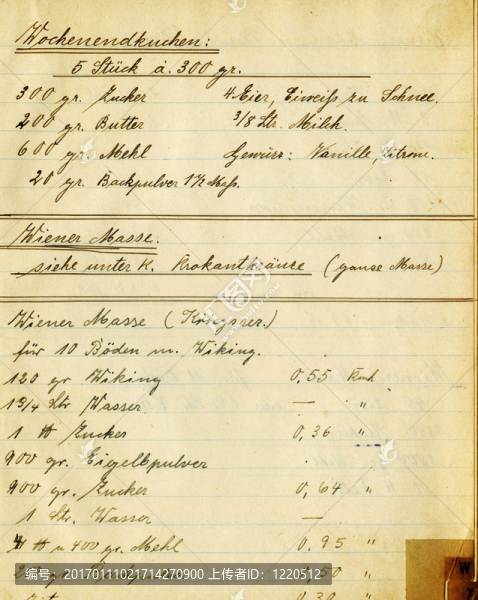 Wochenendkuchen:
5 Stück á. 300 gr.
300 gr. Zucker 4 Eier, Eiweiß zu Schnee.
200 gr. Butter 3/8 Ltr. Milch.
600 gr. Mehl Gewürz: Vanille, Zitrone.
20 gr. Backpulver 1½ Maß.
Wiener Masse.
siehe unter K. Krokantkränze (ganze Masse)
Wiener Masse (Kriegsrez.)
für 10 Böden m. Wiking.
120 gr Wiking 0,55
1 3/4 Ltr Wasser — "
1 ℔ Zucker 0,36 "
900 gr. Eigelbpulver
900 gr. Zucker 0,64 "
1 Ltr. Wasser —
4 ℔ u 400 gr. Mehl 0,95 "
编号:20170111021714270900 上传者ID: 1220512